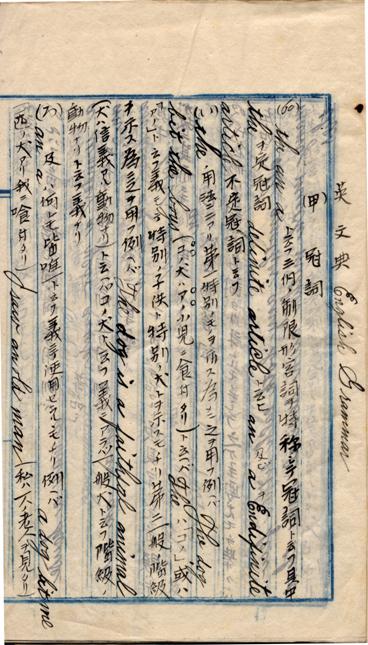 英文典 English Grammar
(甲) 冠詞
(60) the an a ト云フ三個ノ制限形容詞ヲ特称シテ冠詞ト云フ其中
the ヲ定冠詞 definite article ト云ヒ an 及ビ a ヲ Indefinite
article 不定冠詞ト云フ
(い) the ノ用法ニツ 第一 特別ノモノヲ示ス為ニ之ヲ用フ例ハバ The dog
bit the boy (コノ犬ハアノ小児ニ食付タリ) ト云ヘバ the ハ「コノ」或ハ
「アノ」ト云フ義ニテ特別ノ子供ト特別ノ犬トヲ示スモノナリ 第二 一般ノ階級
ヲ示ス為ニ之ヲ用フ例ヘバ The dog is a faithful animal
(犬ハ信義アル動物ナリ) ト云ヘバコノ犬ト云フ義ニアラズ一般ノ犬ト云フ階級ノ
動物ナリト云フ義ナリ
(ろ) an 及 a ハ何レモ皆唯一ト云フ義ニ使用セラルヽモノナリ例ヘバ a dog bit me
(一匹ノ犬アリ我ニ喰付タリ) I saw an old man (私ハ一人ノ老人ヲ見タリ)